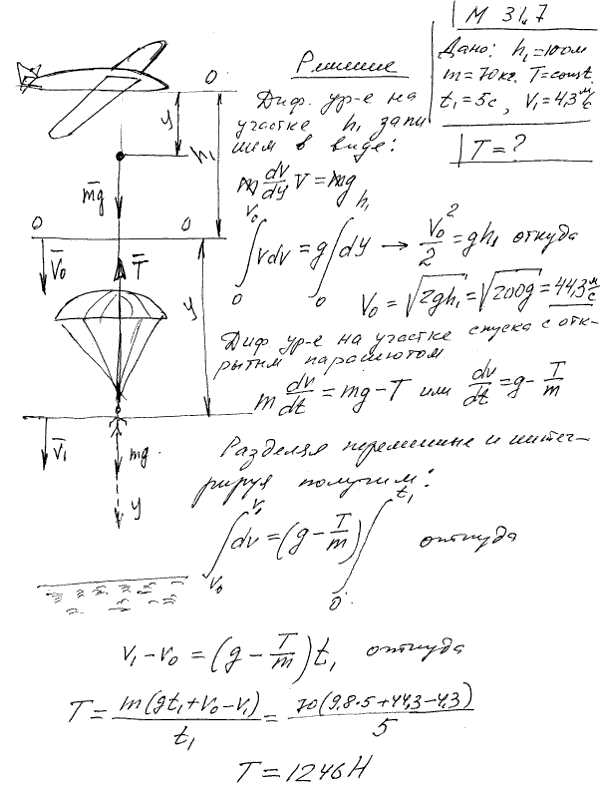 М 31.7
Дано: h₁=100м
m=70кг. T=const.
t₁=5с, V₁=4,3 м/с
T=?
Решение
Диф. ур-е на
участке h₁ запи
шем в виде:
m dv/dy V = mg
∫₀^V₀ vdv = g∫₀^h₁ dy → V₀²/2 = gh₁ откуда
V₀ = √2gh₁ = √200g = 44,3 м/с
Диф. ур-е на участке спуска с отк-
рытым парашютом
m dv/dt = mg-T или dv/dt = g - T/m
Разделяя переменные и интег-
рируя получим:
∫dv = (g - T/m) ∫₀^t₁ откуда
V₁-V₀ = (g - T/m)t₁ откуда
T = m(gt₁+V₀-V₁)/t₁ = 70(9,8·5+44,3-4,3)/5
T = 1246Н
0
y
h₁
m̅g̅
0 0
V̅₀
T̅
y
V̅₁
mg
y